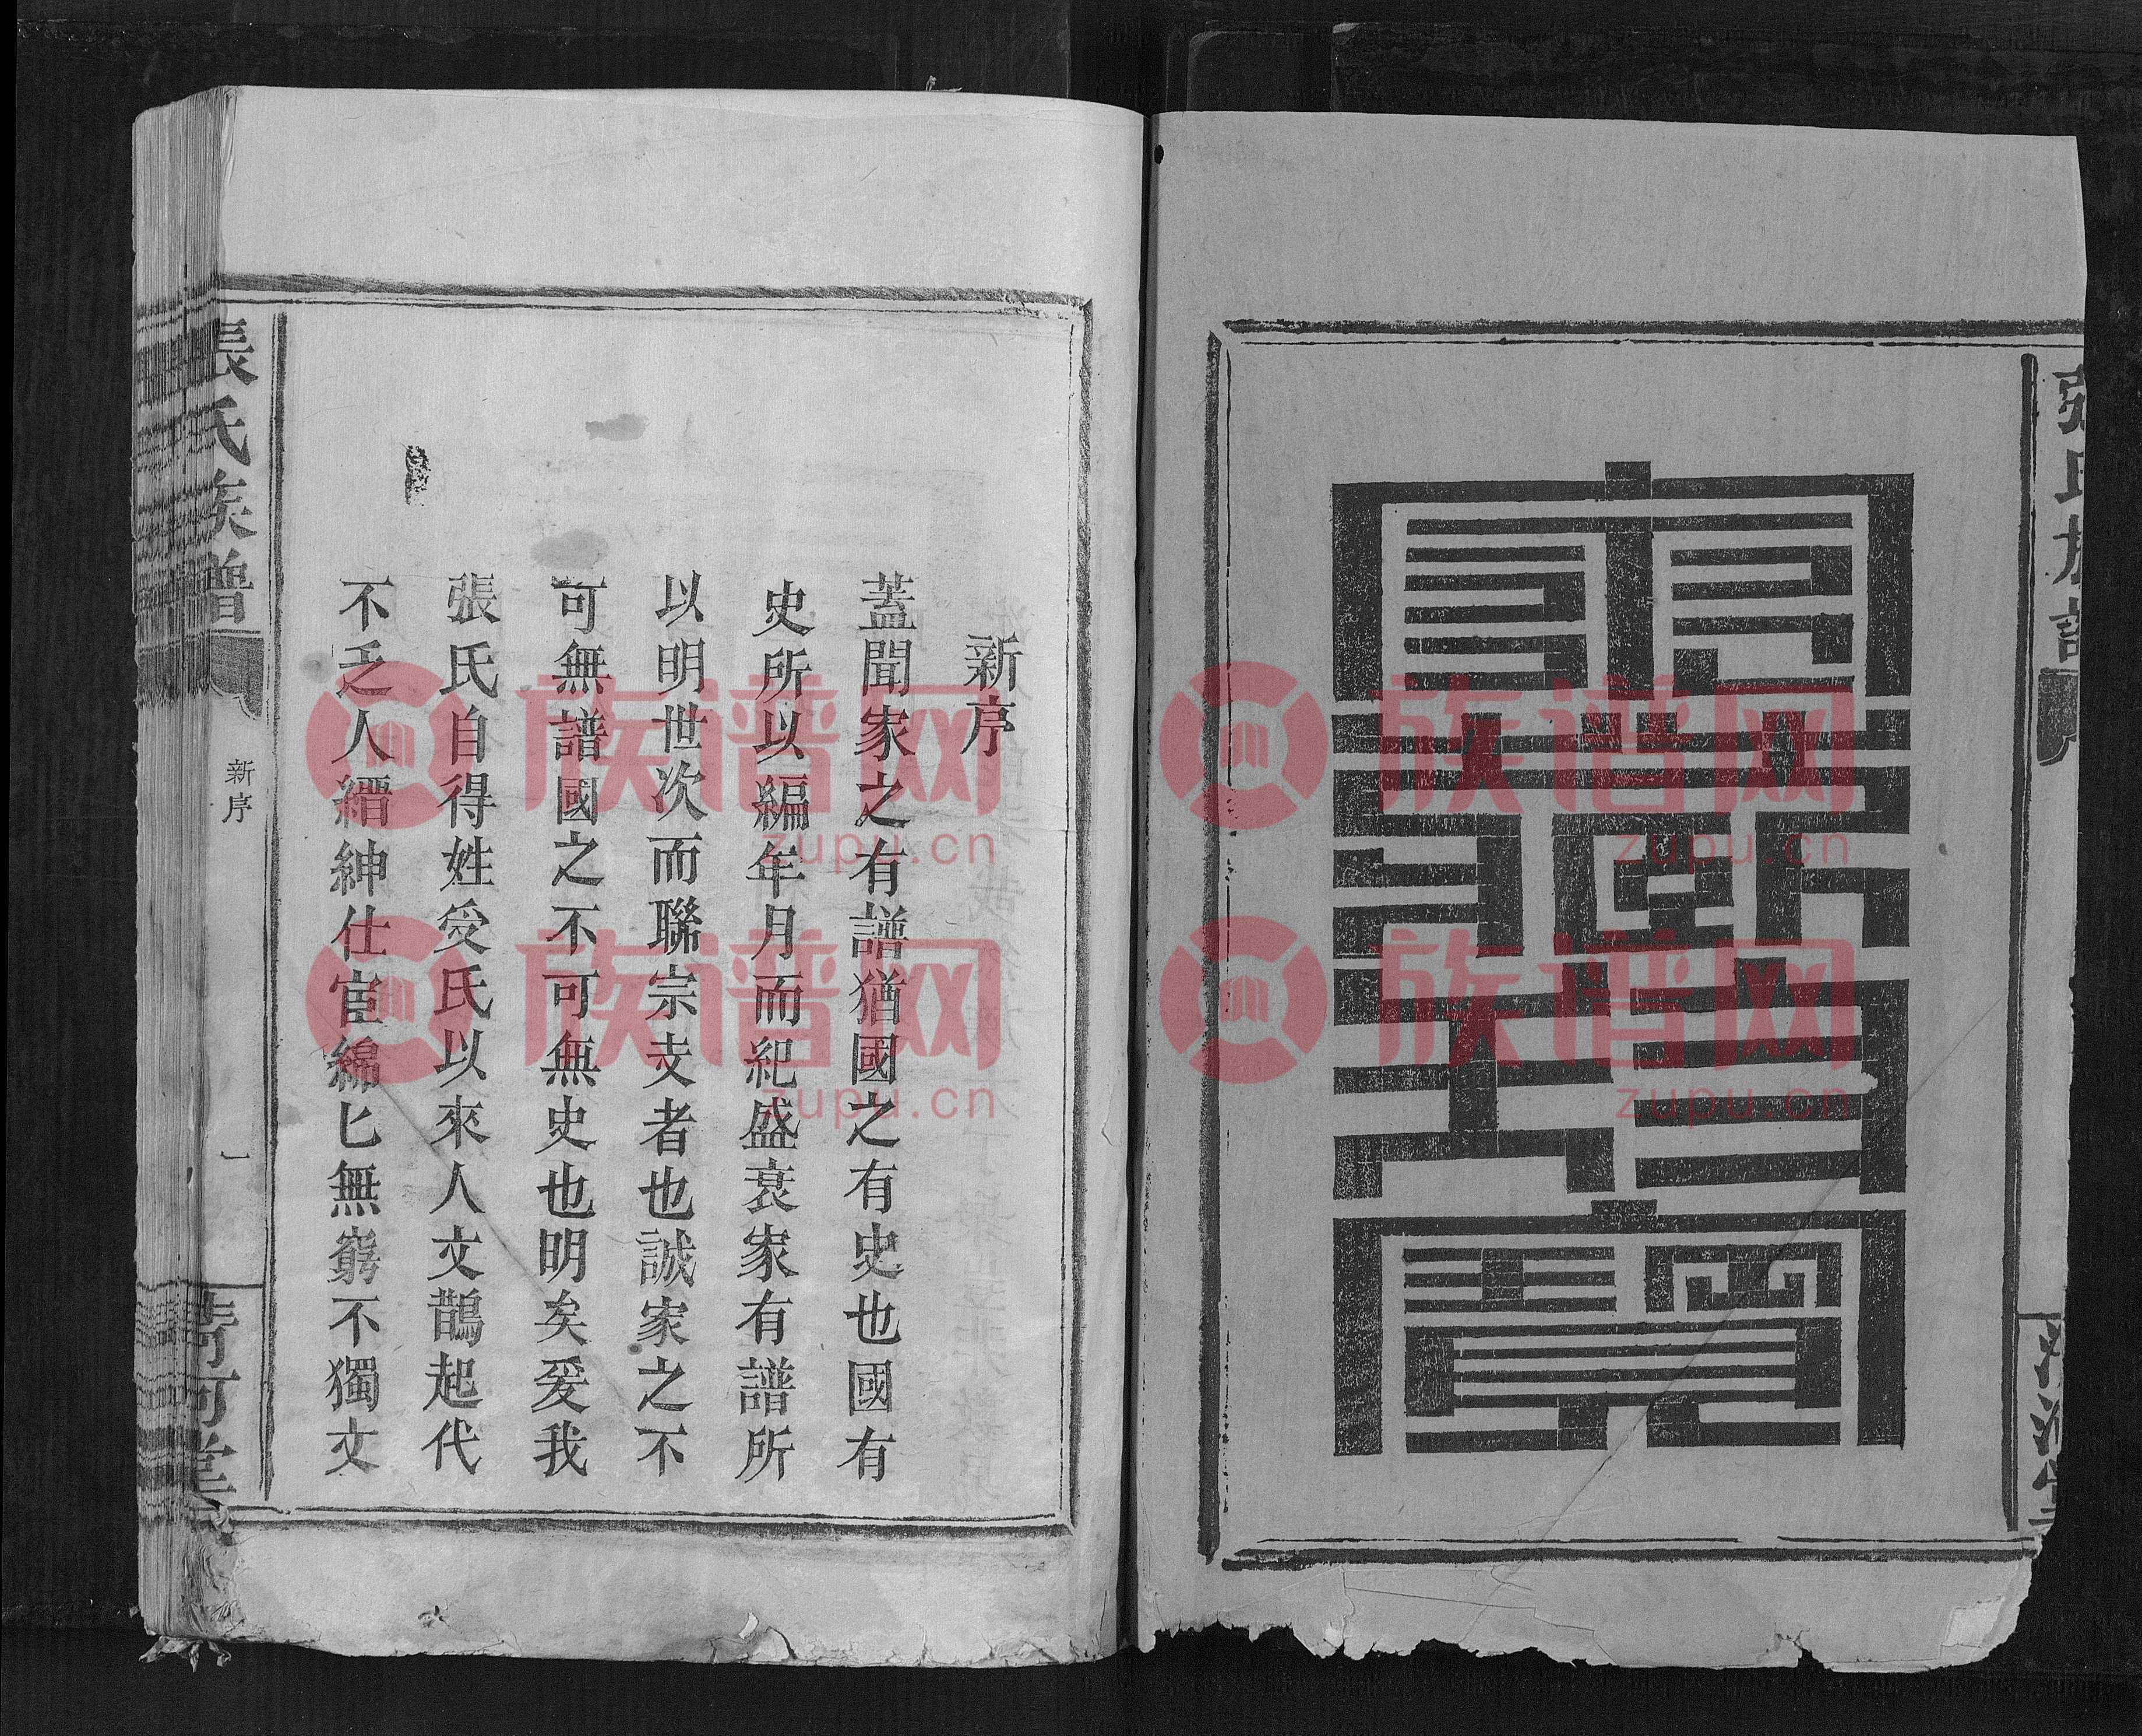 張氏族譜
新序
蓋聞家之有譜猶國之有史也國有
史所以編年月而紀盛衰家有譜所
以明世次而聯宗支者也誠家之不
可無譜國之不可無史也明矣爰我
張氏自得姓受氏以來人文鵲起代
不乏人縉紳仕宦綿匕無窮不獨文
張氏族譜
新序
一
清河堂
族谱网
zupu.cn
族谱网
zupu.cn
族谱网
zupu.cn
族谱网
zupu.cn